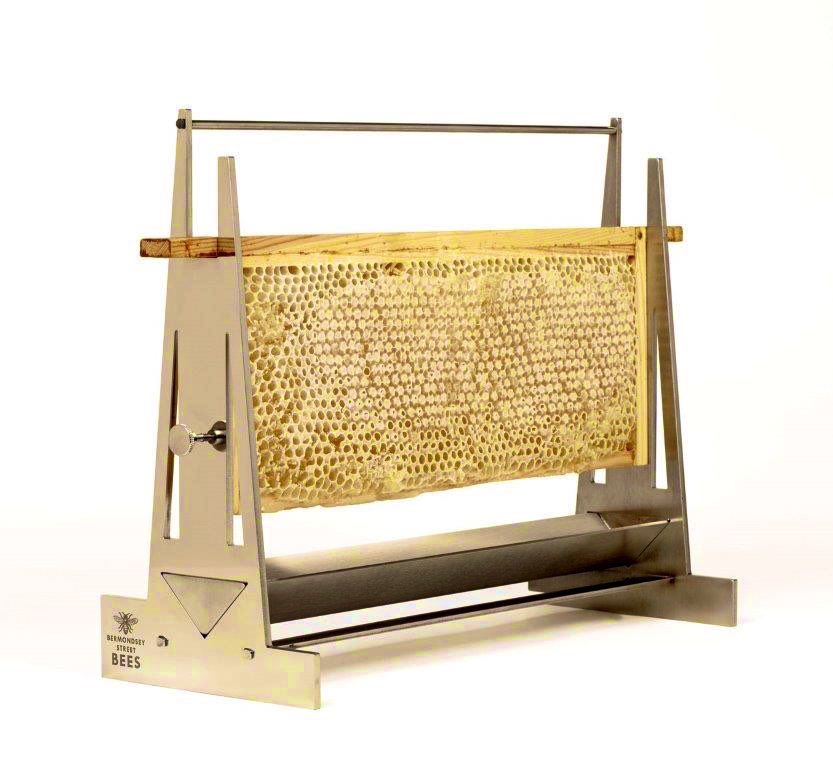 BERMONDSEY
STREET
BEES